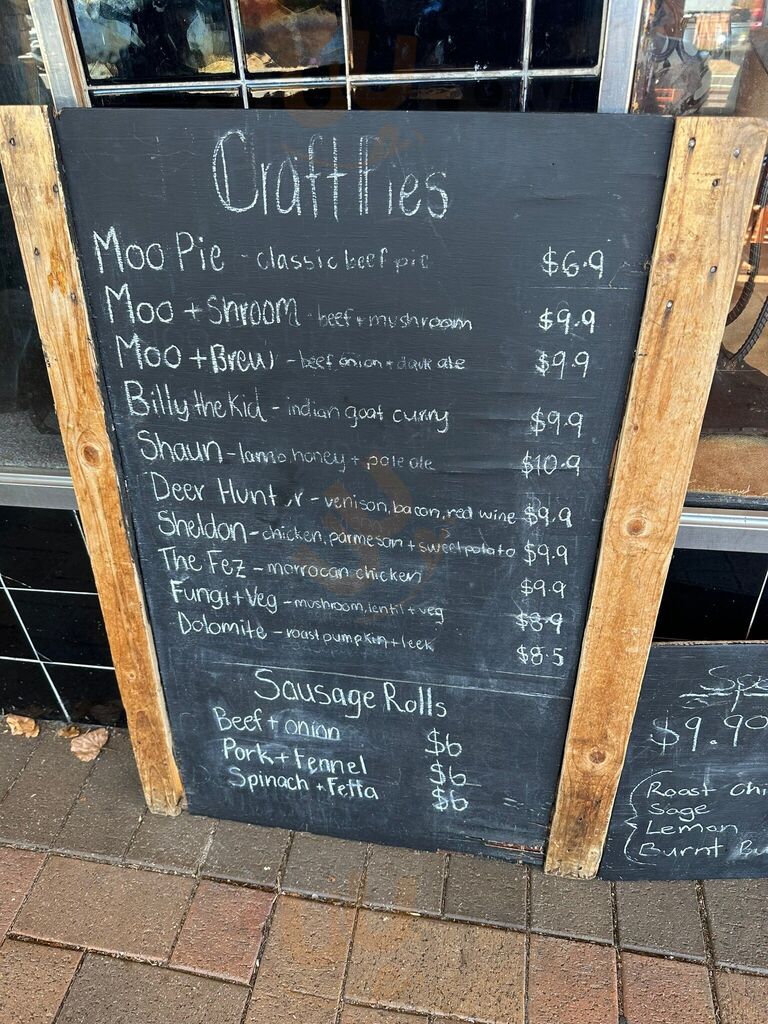 Craft Pies
Moo Pie - classic beef pie $6.9
Moo + Shroom - beef + mushroom $9.9
Moo + Brew - beef onion + dark ale $9.9
Billy the Kid - indian goat curry $9.9
Shaun - lamb honey + pale ale $10.9
Deer Hunter - venison, bacon, red wine $9.9
Sheldon - chicken, parmesan + sweet potato $9.9
The Fez - morrocan chicken $9.9
Fungi + Veg - mushroom, lentil + veg $8.9
Dolomite - roast pumpkin + leek $8.5
Sausage Rolls
Beef + onion $6
Pork + Fennel $6
Spinach + Fetta $6
$9.90
Roast
Sage
Lemon
Burnt